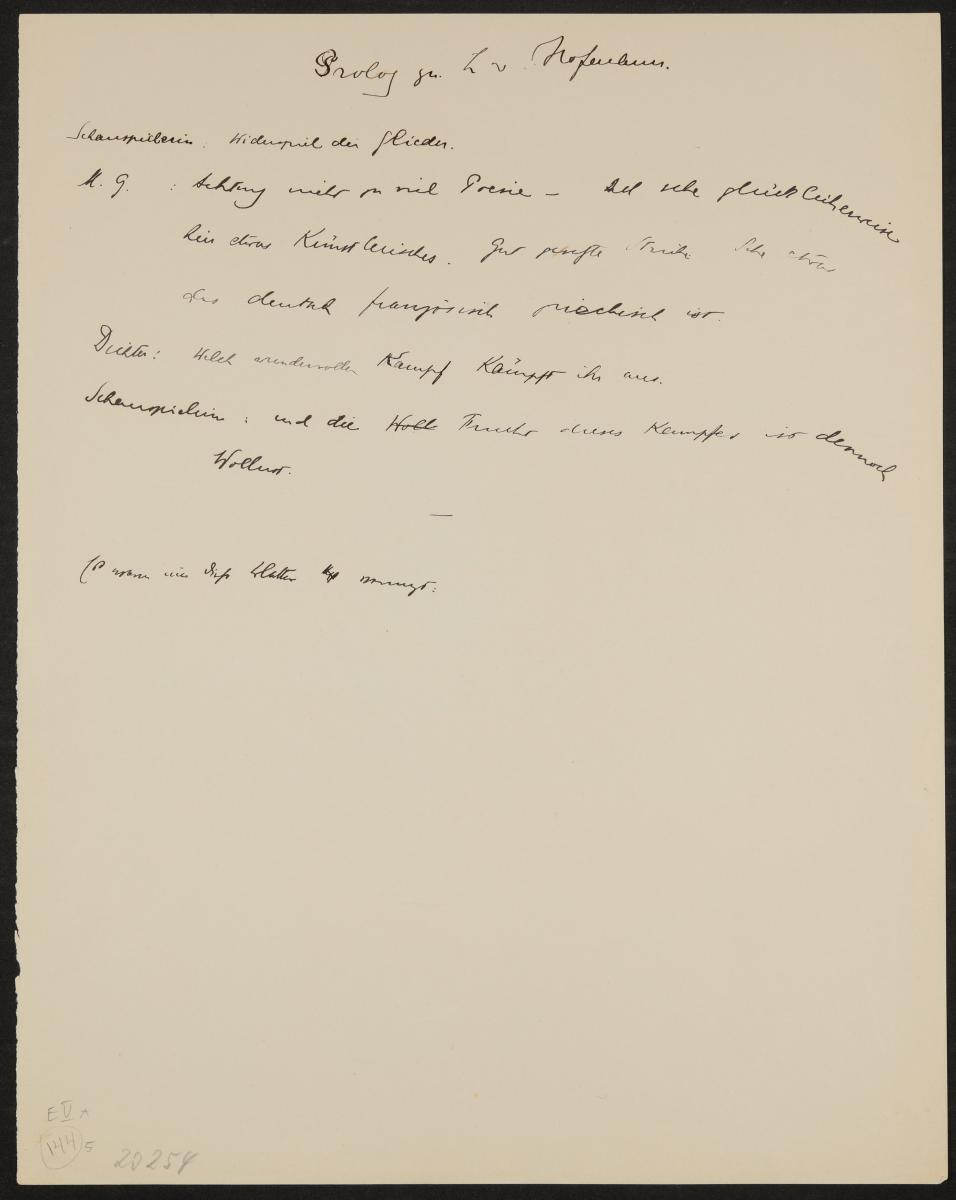 Prolog zu. L v. Hofmann.
Schauspielerin. Widerspiel der Glieder.
M. G. : Achtung nicht zu viel Poesie – Ich sehe glücklicherweise
hier etwas Künstlerisches. Gut Sehe etwas
das deutsch französisch griechisch ist.
Dichter: Welch wundervollen Kampf Kämpft ihr aus.
Schauspielerin : und die Woll Frucht dieses Kampfes ist dennoch
Wollust.
—
uns Blätter
E V A
144 5
20254